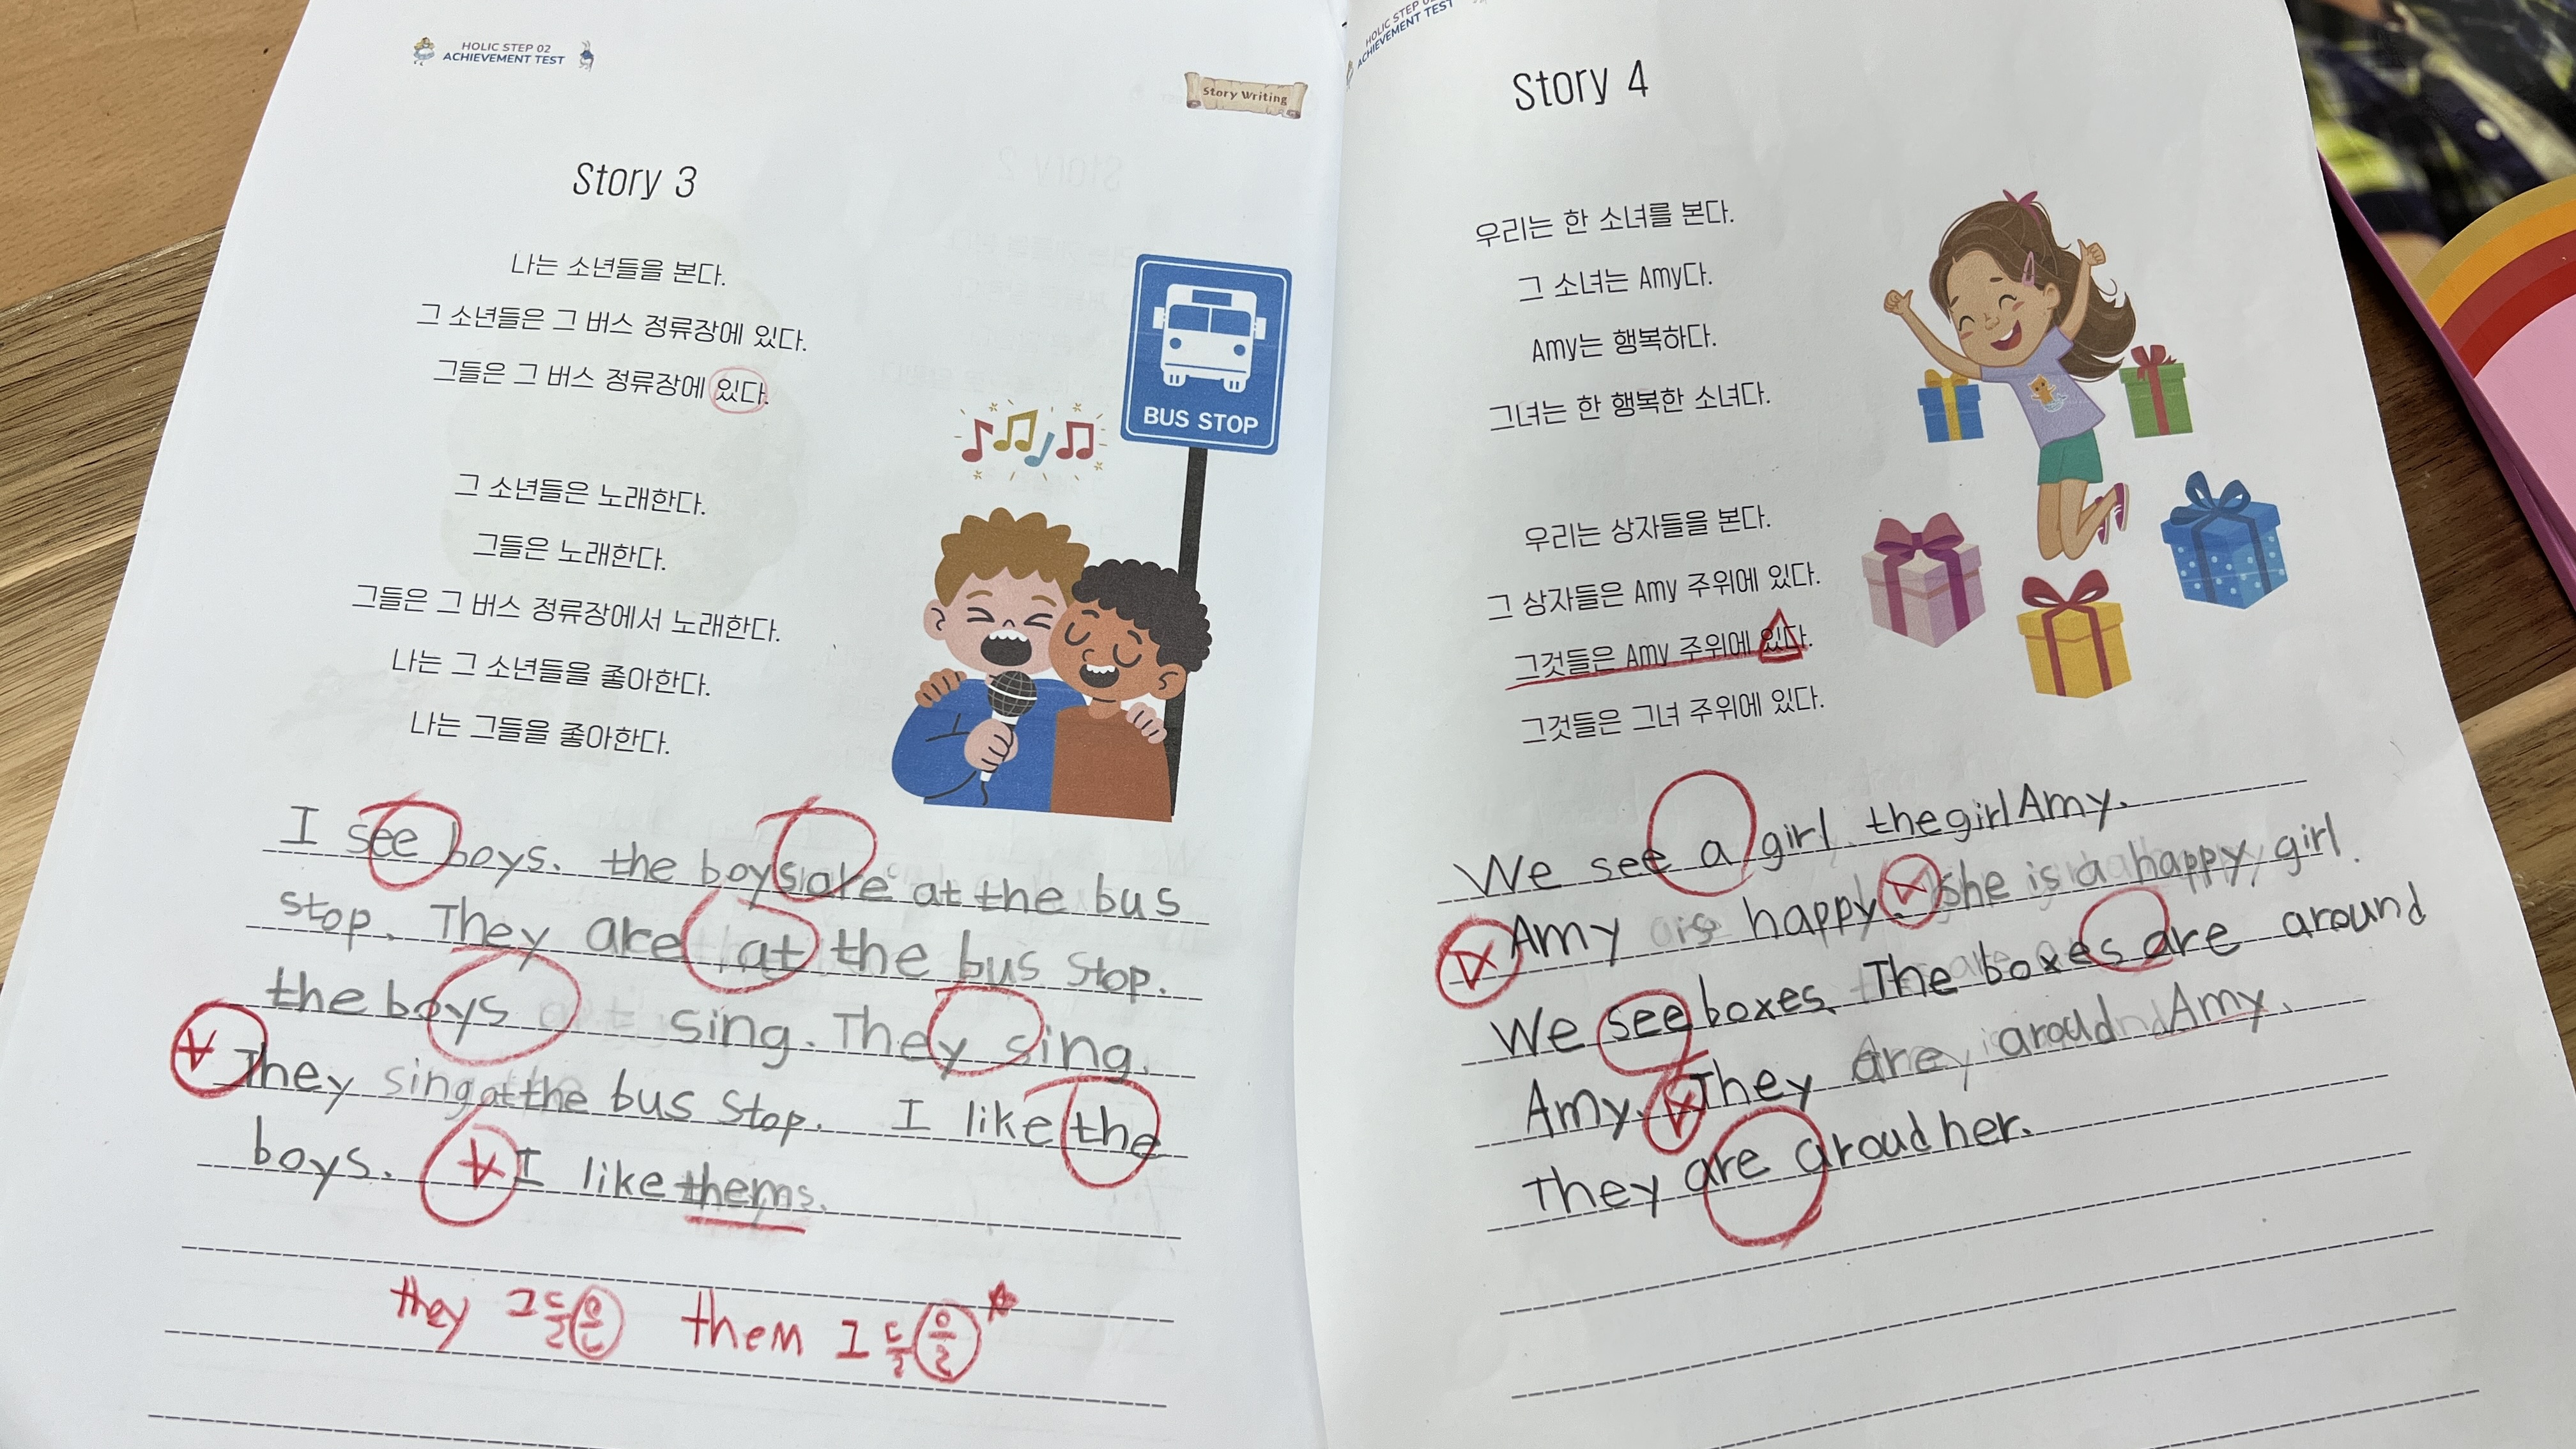 HOLIC STEP 02
ACHIEVEMENT TEST
Story Writing
Story 3
나는 소년들을 본다.
그 소년들은 그 버스 정류장에 있다.
그들은 그 버스 정류장에 있다.
그 소년들은 노래한다.
그들은 노래한다.
그들은 그 버스 정류장에서 노래한다.
나는 그 소년들을 좋아한다.
나는 그들을 좋아한다.
BUS STOP
I see boys. the boys are at the bus
stop. They are at the bus stop.
the boys sing. They sing.
They sing at the bus stop. I like the
boys. I like them
they 그들은 them 그들을
HOLIC STEP
ACHIEVEMENT TEST
Story 4
우리는 한 소녀를 본다.
그 소녀는 Amy다.
Amy는 행복하다.
그녀는 한 행복한 소녀다.
우리는 상자들을 본다.
그 상자들은 Amy 주위에 있다.
그것들은 Amy 주위에 있다.
그것들은 그녀 주위에 있다.
We see a girl. the girl Amy.
Amy is happy. she is a happy girl.
We see boxes. The boxes are around
Amy. They are aroud Amy.
They are aroud her.